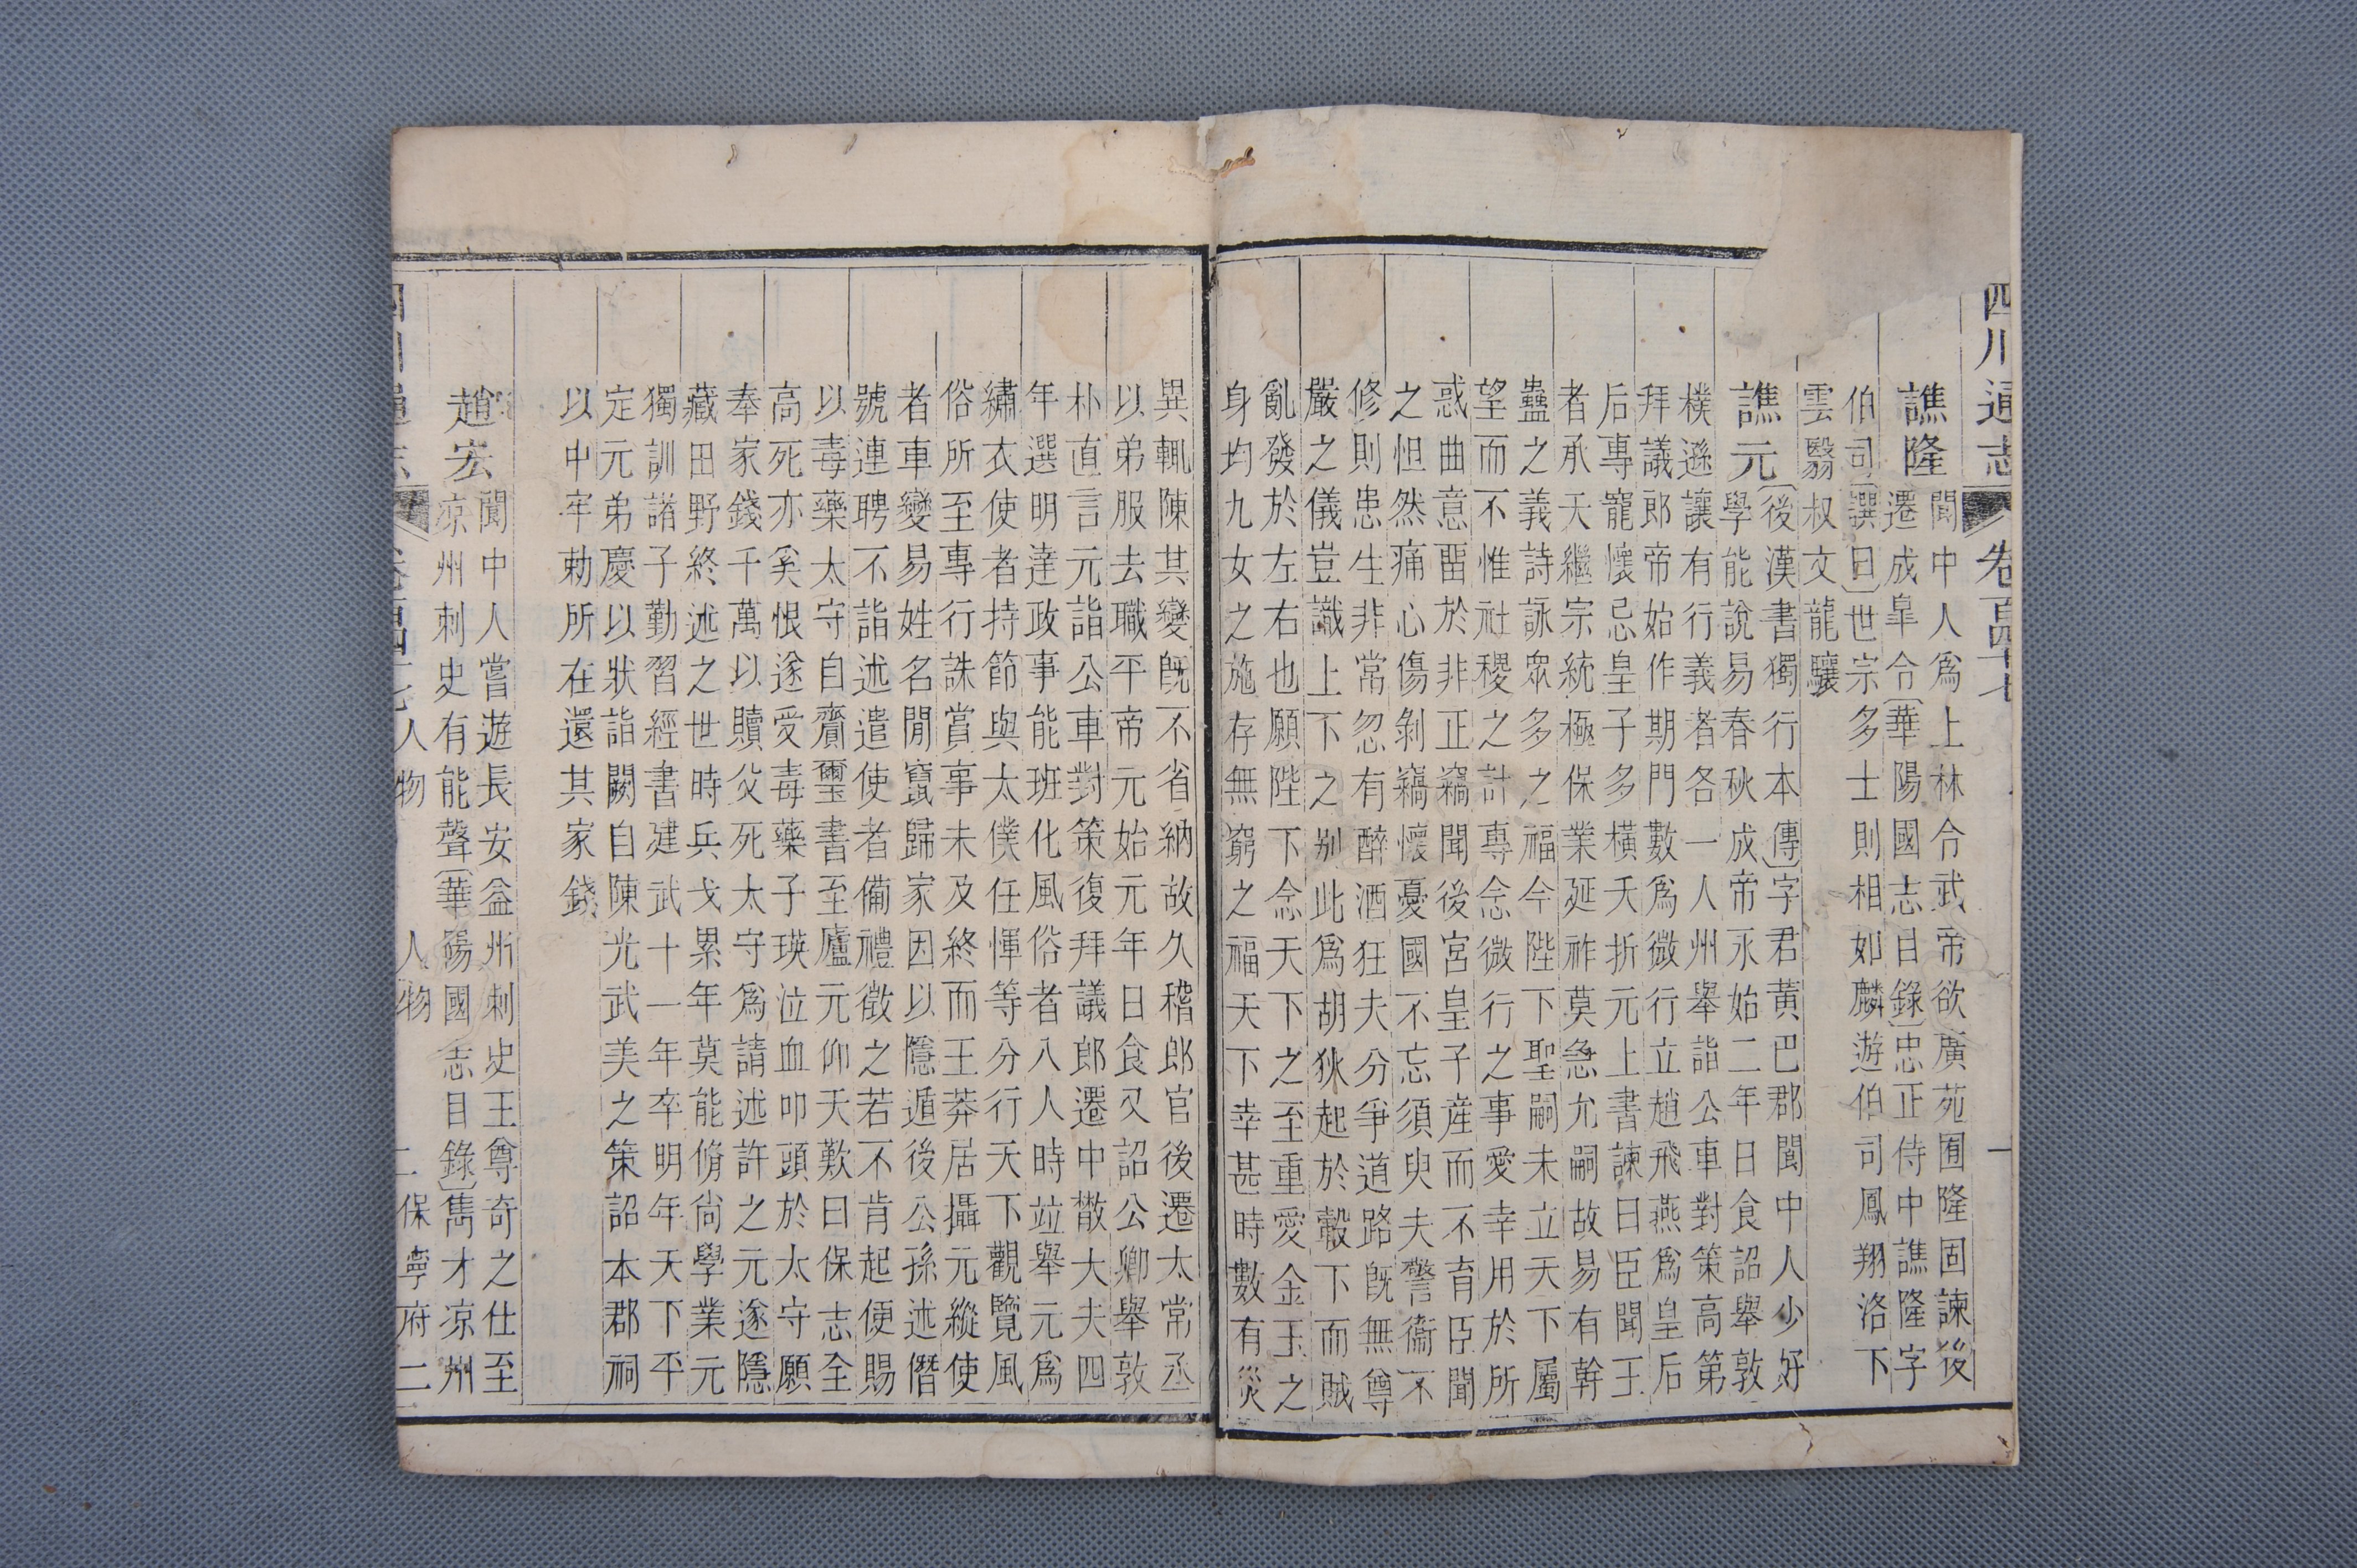 四川通志 卷百四十七 一
譙隆
閬中人爲上林令武帝欲廣苑囿隆固諫後
遷成皐令〔華陽國志目錄〕忠正侍中譙隆字
伯司〔譔曰〕世宗多士則相如麟遊伯司鳳翔洛下
雲翳叔文龍驤
譙元
〔後漢書獨行本傳〕字君黃巴郡閬中人少好
學能說易春秋成帝永始二年日食詔舉敦
樸遜讓有行義者各一人州舉詣公車對策高第
拜議郎帝始作期門數爲微行立趙飛燕爲皇后
后專寵懷忌皇子多橫夭折元上書諫曰臣聞王
者承天繼宗統極保業延祚莫急允嗣故易有幹
蠱之義詩詠衆多之福今陛下聖嗣未立天下屬
望而不惟社稷之計專念微行之事愛幸用於所
惑曲意畱於非正竊聞後宮皇子產而不育臣聞
之怛然痛心傷剝竊懷憂國不忘須臾夫警衞不
修則患生非常忽有醉酒狂夫分爭道路旣無尊
嚴之儀豈識上下之别此爲胡狄起於轂下而賊
亂發於左右也願陛下念天下之至重愛金玉之
身均九女之施存無窮之福天下幸甚時數有災
異輒陳其變旣不省納故久稽郎官後遷太常丞
以弟服去職平帝元始元年日食又詔公卿舉敦
朴直言元詣公車對策復拜議郎遷中散大夫四
年選明達政事能班化風俗者八人時竝舉元爲
繡衣使者持節與太僕任惲等分行天下觀覽風
俗所至專行誅賞事未及終而王莽居攝元縱使
者車變易姓名閒竄歸家因以隱遁後公孫述僭
號連聘不詣述遣使者備禮徵之若不肯起便賜
以毒藥太守自齎璽書至廬元仰天歎曰保志全
高死亦奚恨遂受毒藥子瑛泣血叩頭於太守願
奉家錢千萬以贖父死太守爲請述許之元遂隱
藏田野終述之世時兵戈累年莫能脩尙學業元
獨訓諸子勤習經書建武十一年卒明年天下平
定元弟慶以狀詣闕自陳光武美之策詔本郡祠
以中牢勅所在還其家錢
趙宏
閬中人嘗遊長安益州刺史王尊奇之仕至
凉州刺史有能聲〔華陽國志目錄〕雋才凉州
四川通志 卷百四十七 人物 人物 二 保寧府 二